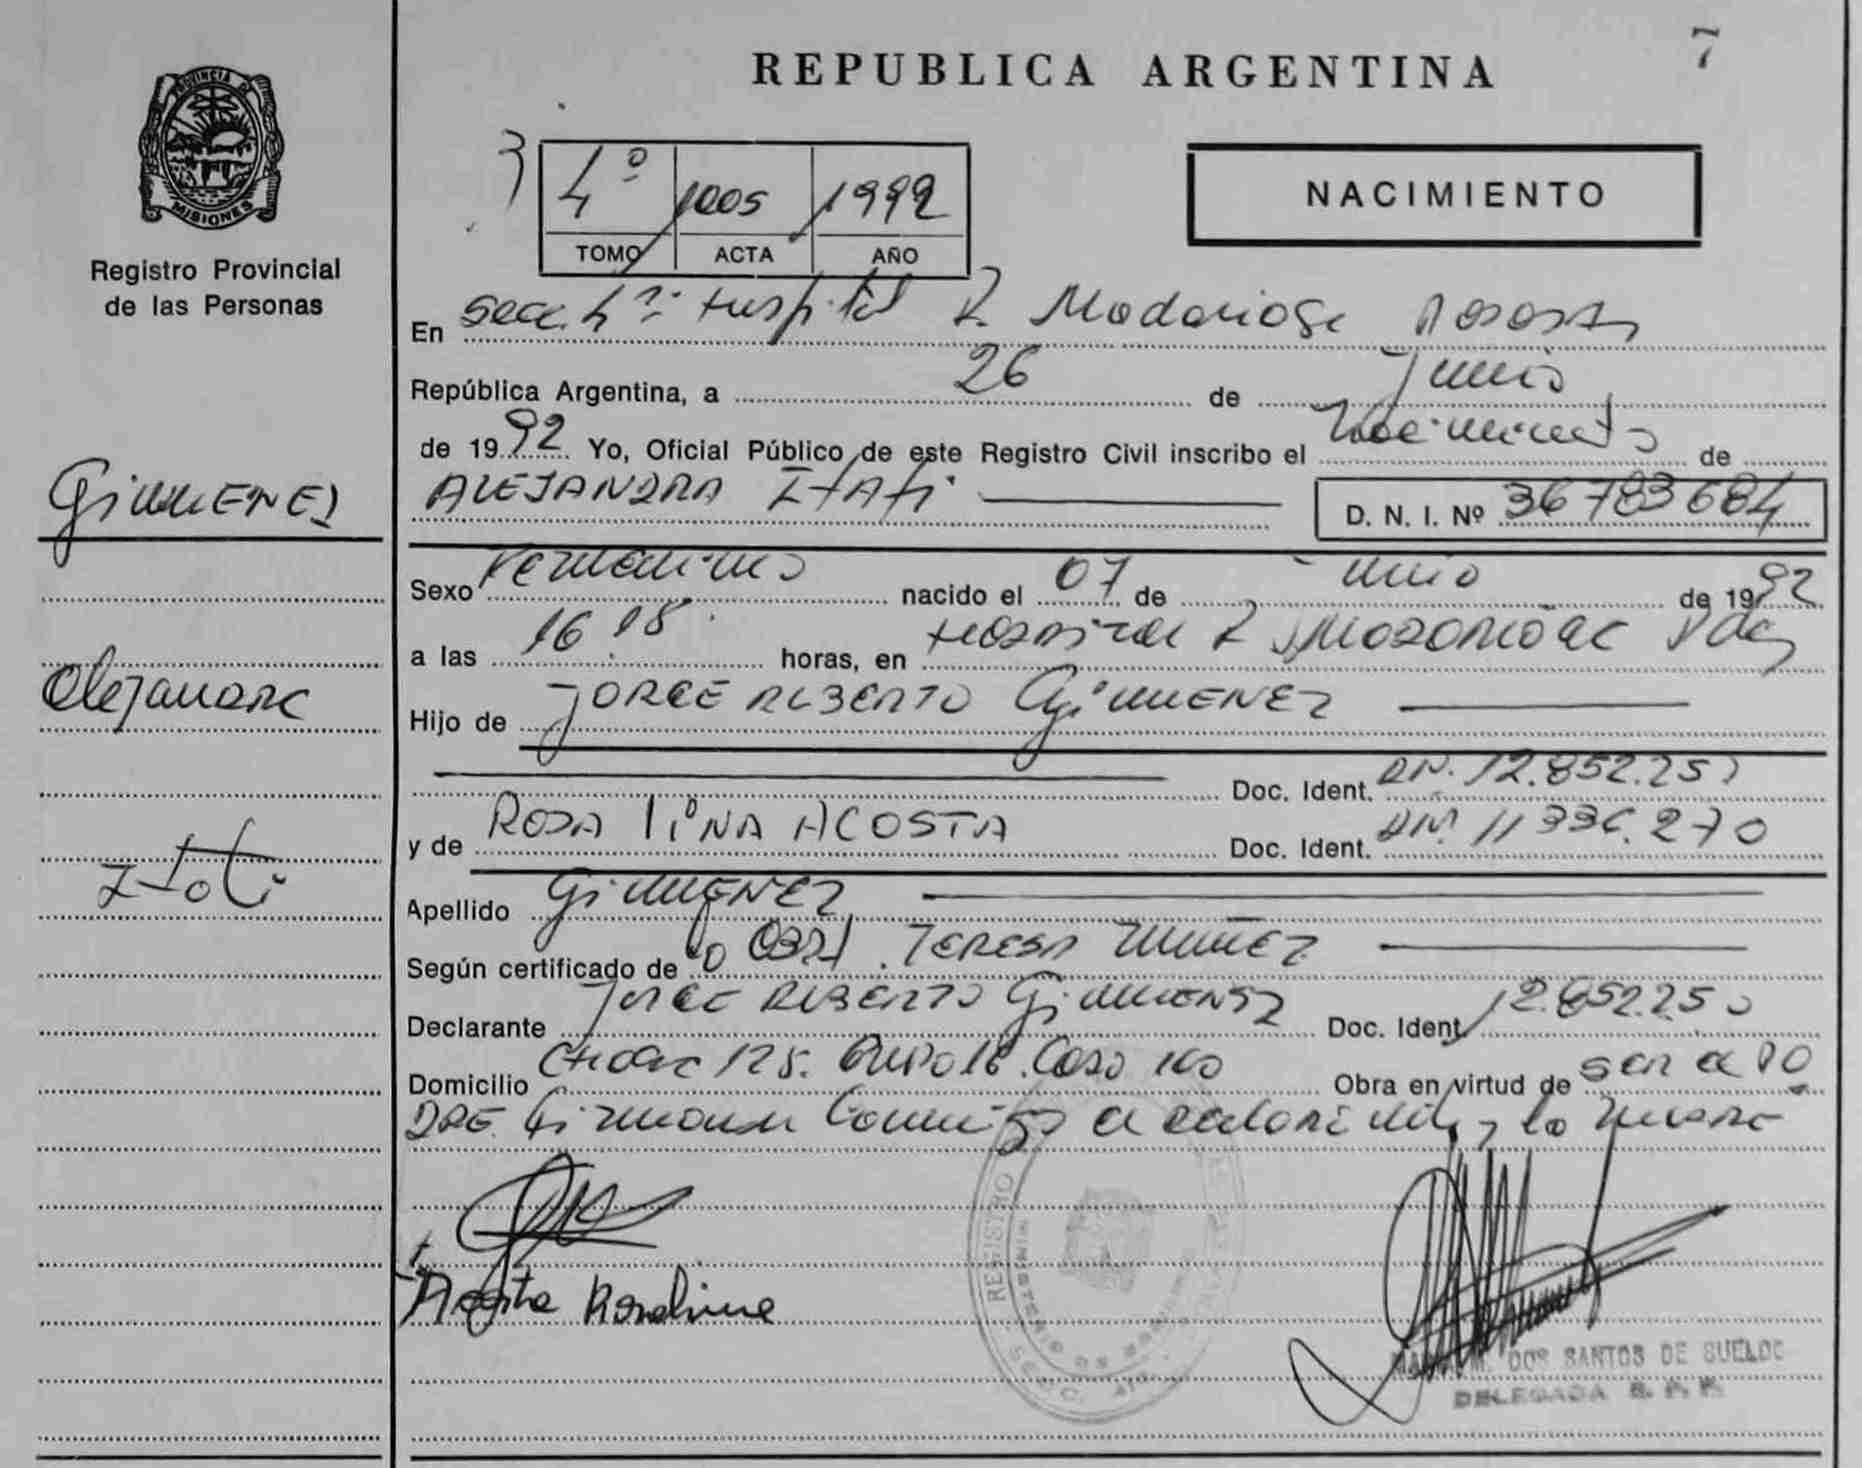 7
REPUBLICA ARGENTINA
PROVINCIA DE
MISIONES
Registro Provincial
de las Personas
4º 1005 1992
TOMO ACTA AÑO
NACIMIENTO
En Secc. 4ª Hospital R. Madariaga Posadas
República Argentina, a 26 de Junio
de 1992 Yo, Oficial Público de este Registro Civil inscribo el Nacimiento de
ALEJANDRA ITATI D. N. I. Nº 36783684
GIMENEZ
Alejandra
Itati
Sexo Femenino nacido el 07 de Junio de 1992
a las 16 18 horas, en Hospital R Madariaga Pdas
Hijo de JORGE ALBERTO GIMENEZ
Doc. Ident. DNI. 12.852.25
y de ROSA LINA ACOSTA Doc. Ident. DNI. 11 336.270
Apellido GIMENEZ
Según certificado de la Obst. TERESA NUÑEZ
Declarante JORGE ALBERTO GIMENEZ Doc. Ident. 12.852.25
Domicilio Chacra 125. Casa Obra en virtud de ser el PA
DRE. Firmando conmigo el declarante y la madre
Acosta Rosalina
REGISTRO
DOS SANTOS DE
DELEGADA R. P. P.